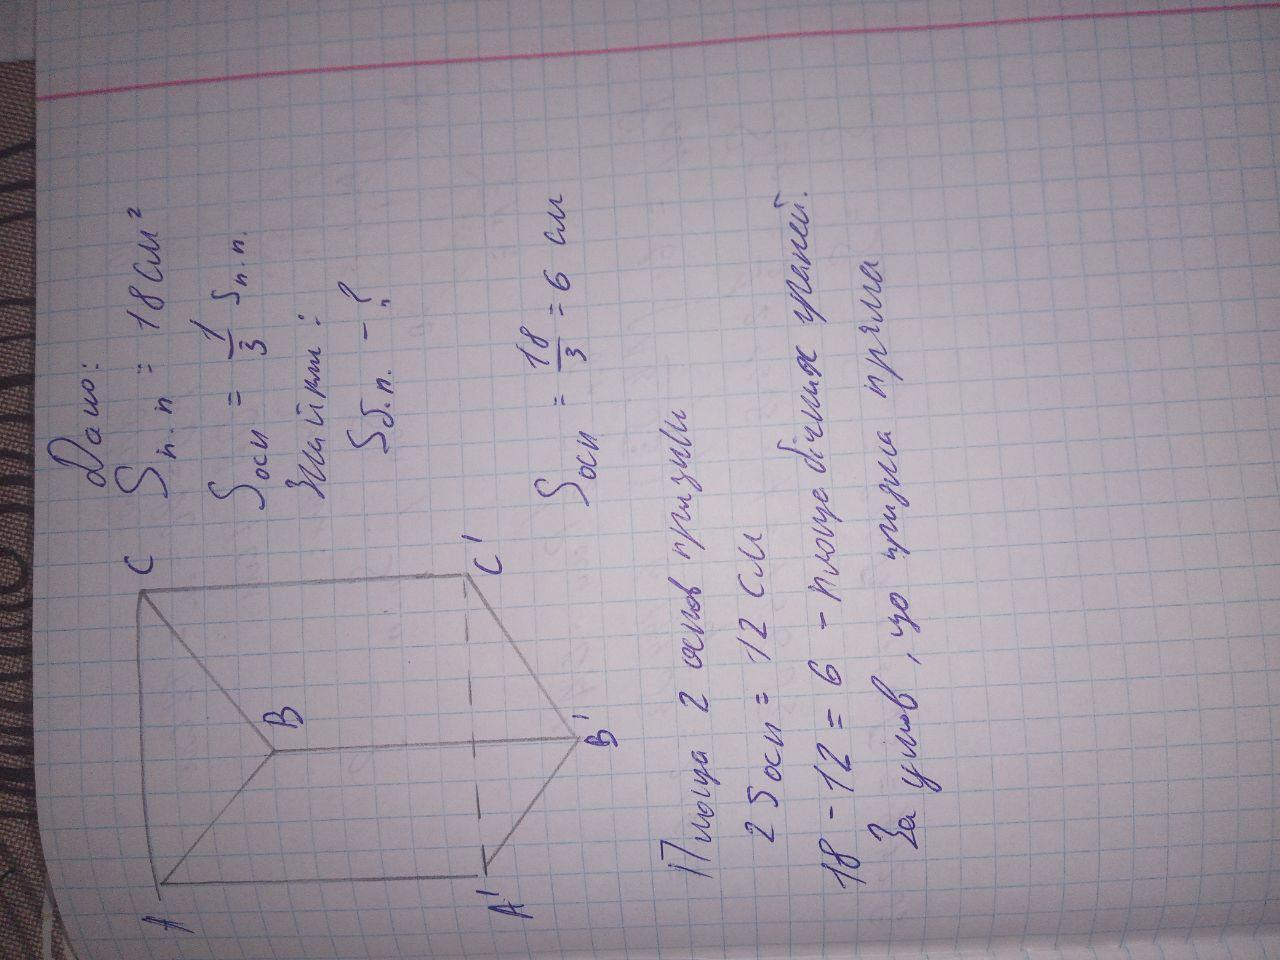 Дано:
Sп.п = 18 см²
Sосн = 1/3 Sп.п.
Знайти:
Sб.п. - ?
A
B
C
A'
B'
C'
Sосн = 18/3 = 6 см
Площа 2 основ призми
2 Sосн = 12 см
18 - 12 = 6 - площе бічних граней.
За умов, що призма пряма